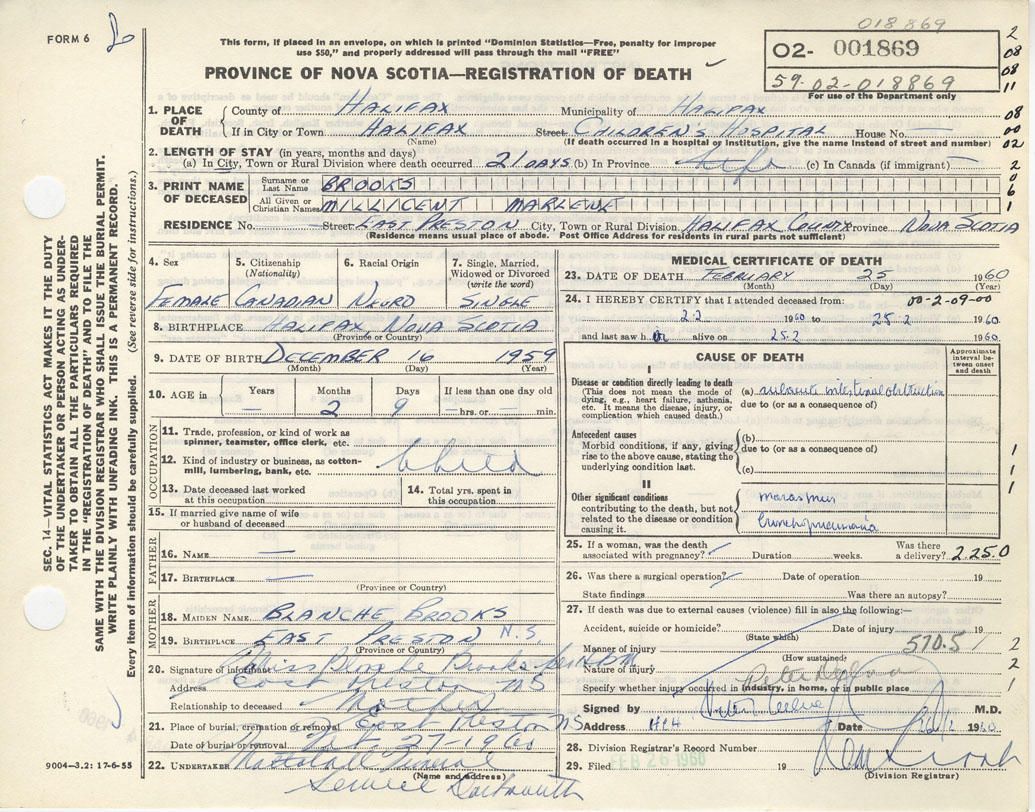 018869
FORM 6
This form, if placed in an envelope, on which is printed "Dominion Statistics—Free, penalty for improper
use $50," and properly addressed will pass through the mail "FREE"
PROVINCE OF NOVA SCOTIA—REGISTRATION OF DEATH
02- 001869
59-02-018869
For use of the Department only
2
08
08
11
1. PLACE OF DEATH
County of HALIFAX Municipality of HALIFAX
If in City or Town HALIFAX Street CHILDREN'S HOSPITAL House No. —
(Name) (If death occurred in a hospital or institution, give the name instead of street and number)
08
00
02
2. LENGTH OF STAY (in years, months and days)
(a) In City, Town or Rural Division where death occurred 21 DAYS (b) In Province life (c) In Canada (if immigrant) —
2
0
6
1
3. PRINT NAME OF DECEASED
Surname or Last Name BROOKS
All Given or Christian Names MILLICENT MARLENE
RESIDENCE No. Street EAST PRESTON City, Town or Rural Division HALIFAX COUNTY Province NOVA SCOTIA
(Residence means usual place of abode. Post Office Address for residents in rural parts not sufficient)
SEC. 14—VITAL STATISTICS ACT MAKES IT THE DUTY
OF THE UNDERTAKER OR PERSON ACTING AS UNDER-
TAKER TO OBTAIN ALL THE PARTICULARS REQUIRED
IN THE "REGISTRATION OF DEATH" AND TO FILE THE
SAME WITH THE DIVISION REGISTRAR WHO SHALL ISSUE THE BURIAL PERMIT.
WRITE PLAINLY WITH UNFADING INK. THIS IS A PERMANENT RECORD.
Every item of information should be carefully supplied. (See reverse side for instructions.)
4. Sex
FEMALE
5. Citizenship
(Nationality)
CANADIAN
6. Racial Origin
NEGRO
7. Single, Married,
Widowed or Divorced
(write the word)
SINGLE
8. BIRTHPLACE HALIFAX, NOVA SCOTIA
(Province or Country)
9. DATE OF BIRTH DECEMBER 16 1959
(Month) (Day) (Year)
10. AGE in
Years Months Days If less than one day old
— 2 9 — hrs. or — min.
OCCUPATION
11. Trade, profession, or kind of work as
spinner, teamster, office clerk, etc.
12. Kind of industry or business, as cotton-
mill, lumbering, bank, etc.
Child
13. Date deceased last worked
at this occupation
14. Total yrs. spent in
this occupation
15. If married give name of wife
or husband of deceased
FATHER
16. NAME —
17. BIRTHPLACE —
(Province or Country)
MOTHER
18. MAIDEN NAME BLANCHE BROOKS
19. BIRTHPLACE EAST PRESTON N.S
(Province or Country)
20. Signature of informant Miss Blanche Brooks
Address East Preston NS
Relationship to deceased Mother
21. Place of burial, cremation or removal East Preston NS
Date of burial or removal 27-1960
22. UNDERTAKER Funeral
(Name and address)
Service Dartmouth
9004—3.2: 17-6-55
MEDICAL CERTIFICATE OF DEATH
23. DATE OF DEATH FEBRUARY 25 1960
(Month) (Day) (Year)
24. I HEREBY CERTIFY that I attended deceased from: 00-2-09-00
2.2 1960 to 25.2 1960
and last saw her alive on 25.2 1960
CAUSE OF DEATH
Approximate
interval be-
tween onset
and death
I
Disease or condition directly leading to death
(This does not mean the mode of
dying, e.g., heart failure, asthenia,
etc. It means the disease, injury, or
complication which caused death.)
(a) subacute intestinal obstruction
due to (or as a consequence of)
Antecedent causes
Morbid conditions, if any, giving
rise to the above cause, stating the
underlying condition last.
(b)
due to (or as a consequence of)
(c)
1
1
1
II
Other significant conditions
contributing to the death, but not
related to the disease or condition
causing it.
marasmus
bronchopneumonia
25. If a woman, was the death
associated with pregnancy? — Duration weeks. Was there
a delivery? 2250
26. Was there a surgical operation? Date of operation 19
State findings Was there an autopsy?
27. If death was due to external causes (violence) fill in also the following:—
Accident, suicide or homicide? Date of injury 19
(State which)
570.5
Manner of injury
(How sustained)
Nature of injury
2
2
1
Specify whether injury occurred in industry, in home, or in public place
Signed by M.D.
Address Date 1960
28. Division Registrar's Record Number
29. Filed FEB 26 1960 19
(Division Registrar)